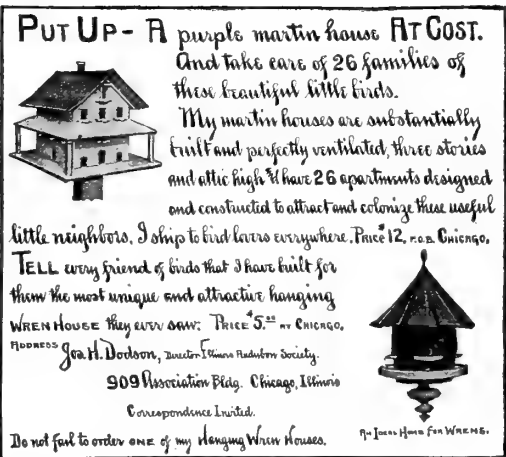 PUT UP - A purple martin house AT COST.
And take care of 26 families of
these beautiful little birds.
My martin houses are substantially
built and perfectly ventilated, three stories
and attic high & have 26 apartments designed
and constructed to attract and colonize these useful
little neighbors. I ship to bird lovers everywhere. PRICE $12, F.O.B. CHICAGO.
TELL every friend of birds that I have built for
them the most unique and attractive hanging
WREN HOUSE they ever saw: PRICE $5.00 AT CHICAGO.
ADDRESS Jos. H. Dodson, Director Illinois Audubon Society.
909 Association Bldg. Chicago, Illinois
Correspondence Invited.
AN IDEAL HOME FOR WRENS.
Do not fail to order ONE of my Hanging Wren Houses.